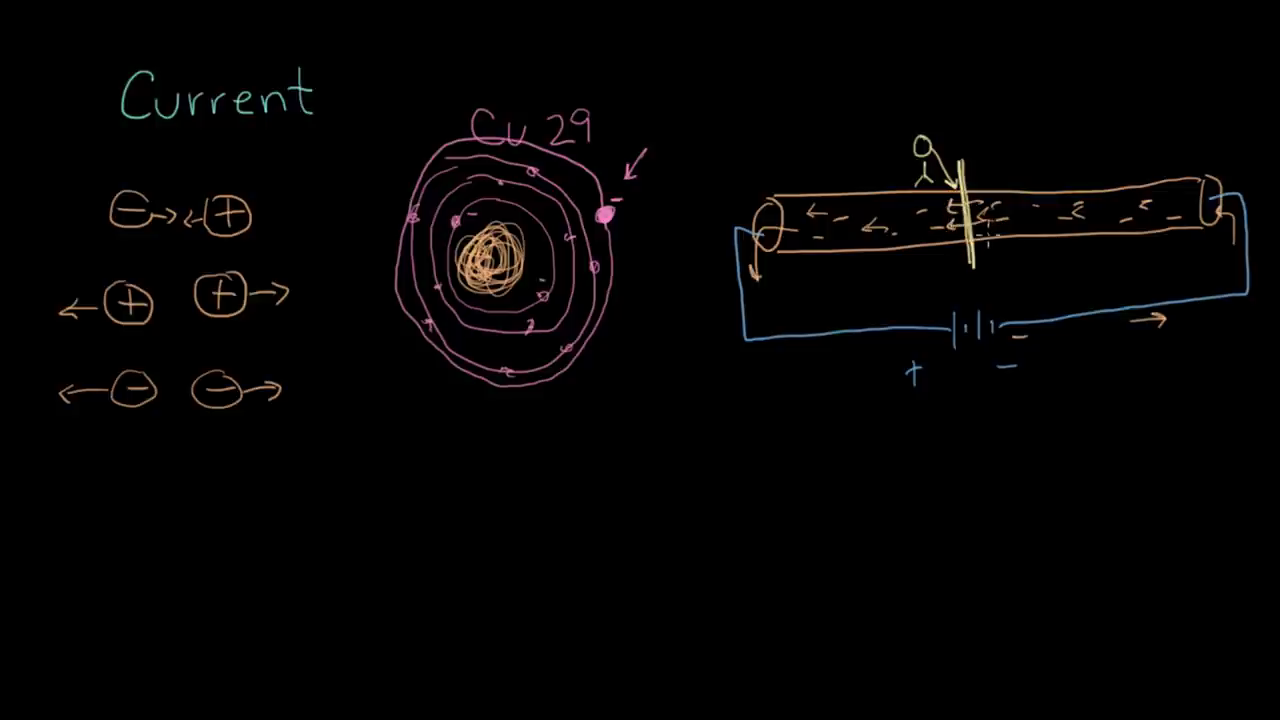 Current
Cu 29
− +
+ +
− −
+ −